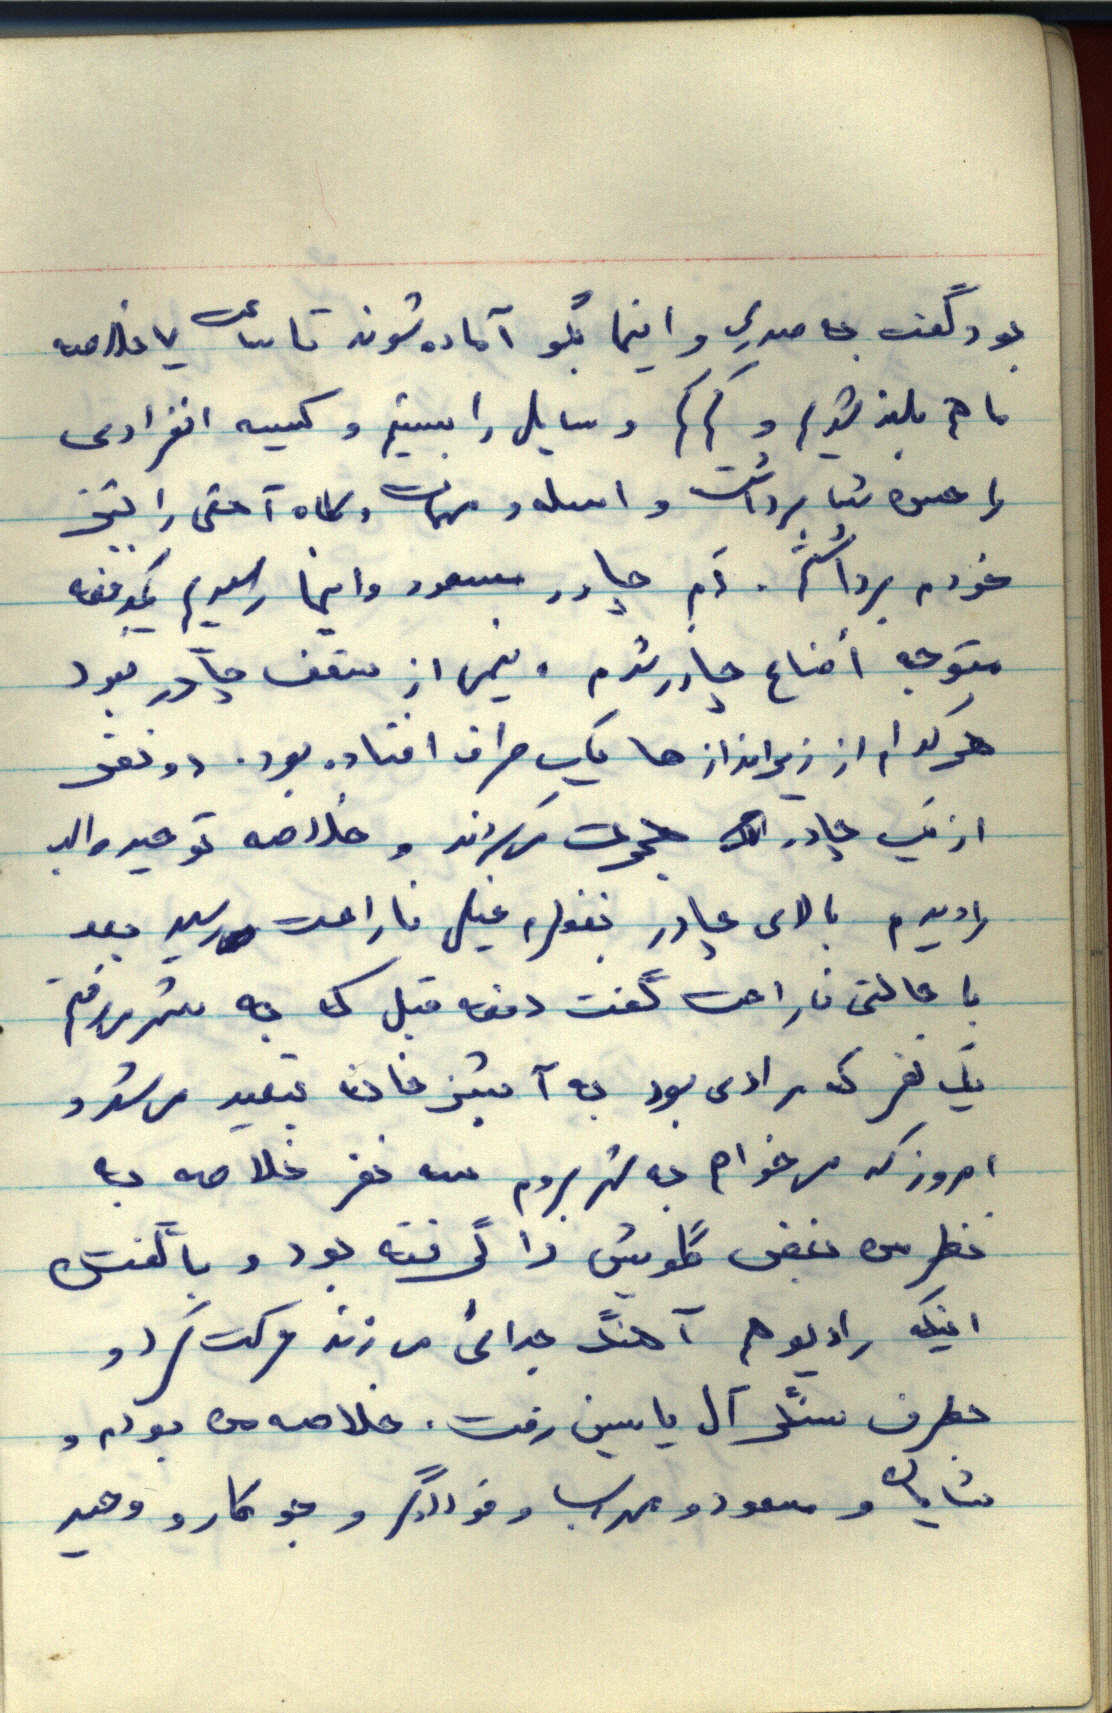 بود گفت به صیدی و اینها بگو آماده شوند تا ساعت ۷ خلاصه
ما هم بلند شدیم و کم کم وسایل را بستیم و کیسه انفرادی
را حسن برداشت و اسلحه و مهمات و کلاه آهنی را نیز
خودم برداشتم. دم چادر مسعود و اینها رسیدیم یکدفعه
متوجه اوضاع چادر شدم. نیمی از سقف چادر نبود
هر کدام از زیراندازها یک طرف افتاده بود. دو نفر
از یک چادر هجرت می‌کردند و خلاصه توحید والد
را دیدم بالای چادر بنظرم خیلی ناراحت رسید بعد
با حالتی ناراحت گفت دفعه قبل که به شهر می‌رفتم
یک نفر که مرادی بود به آشپزخانه تبعید می‌شد و
امروز که می‌خواهم به شهر بروم سه نفر خلاصه به
نظر من بغض گلویش را گرفته بود و با گفتن
اینکه رادیو هم آهنگ جدائی می‌زند حرکت کرد و
بطرف سنگر آل یاسین رفت. خلاصه من بودم و
شایان و مسعود و مهراب و و وحید